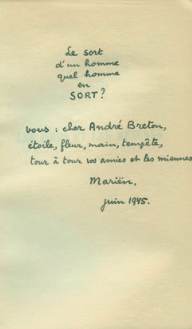 Le sort
d'un homme
quel homme
en
SORT?
vous : cher André Breton,
étoile, fleur, main, tempête,
tour à tour vos amies et les miennes
Mariën,
juin 1945.